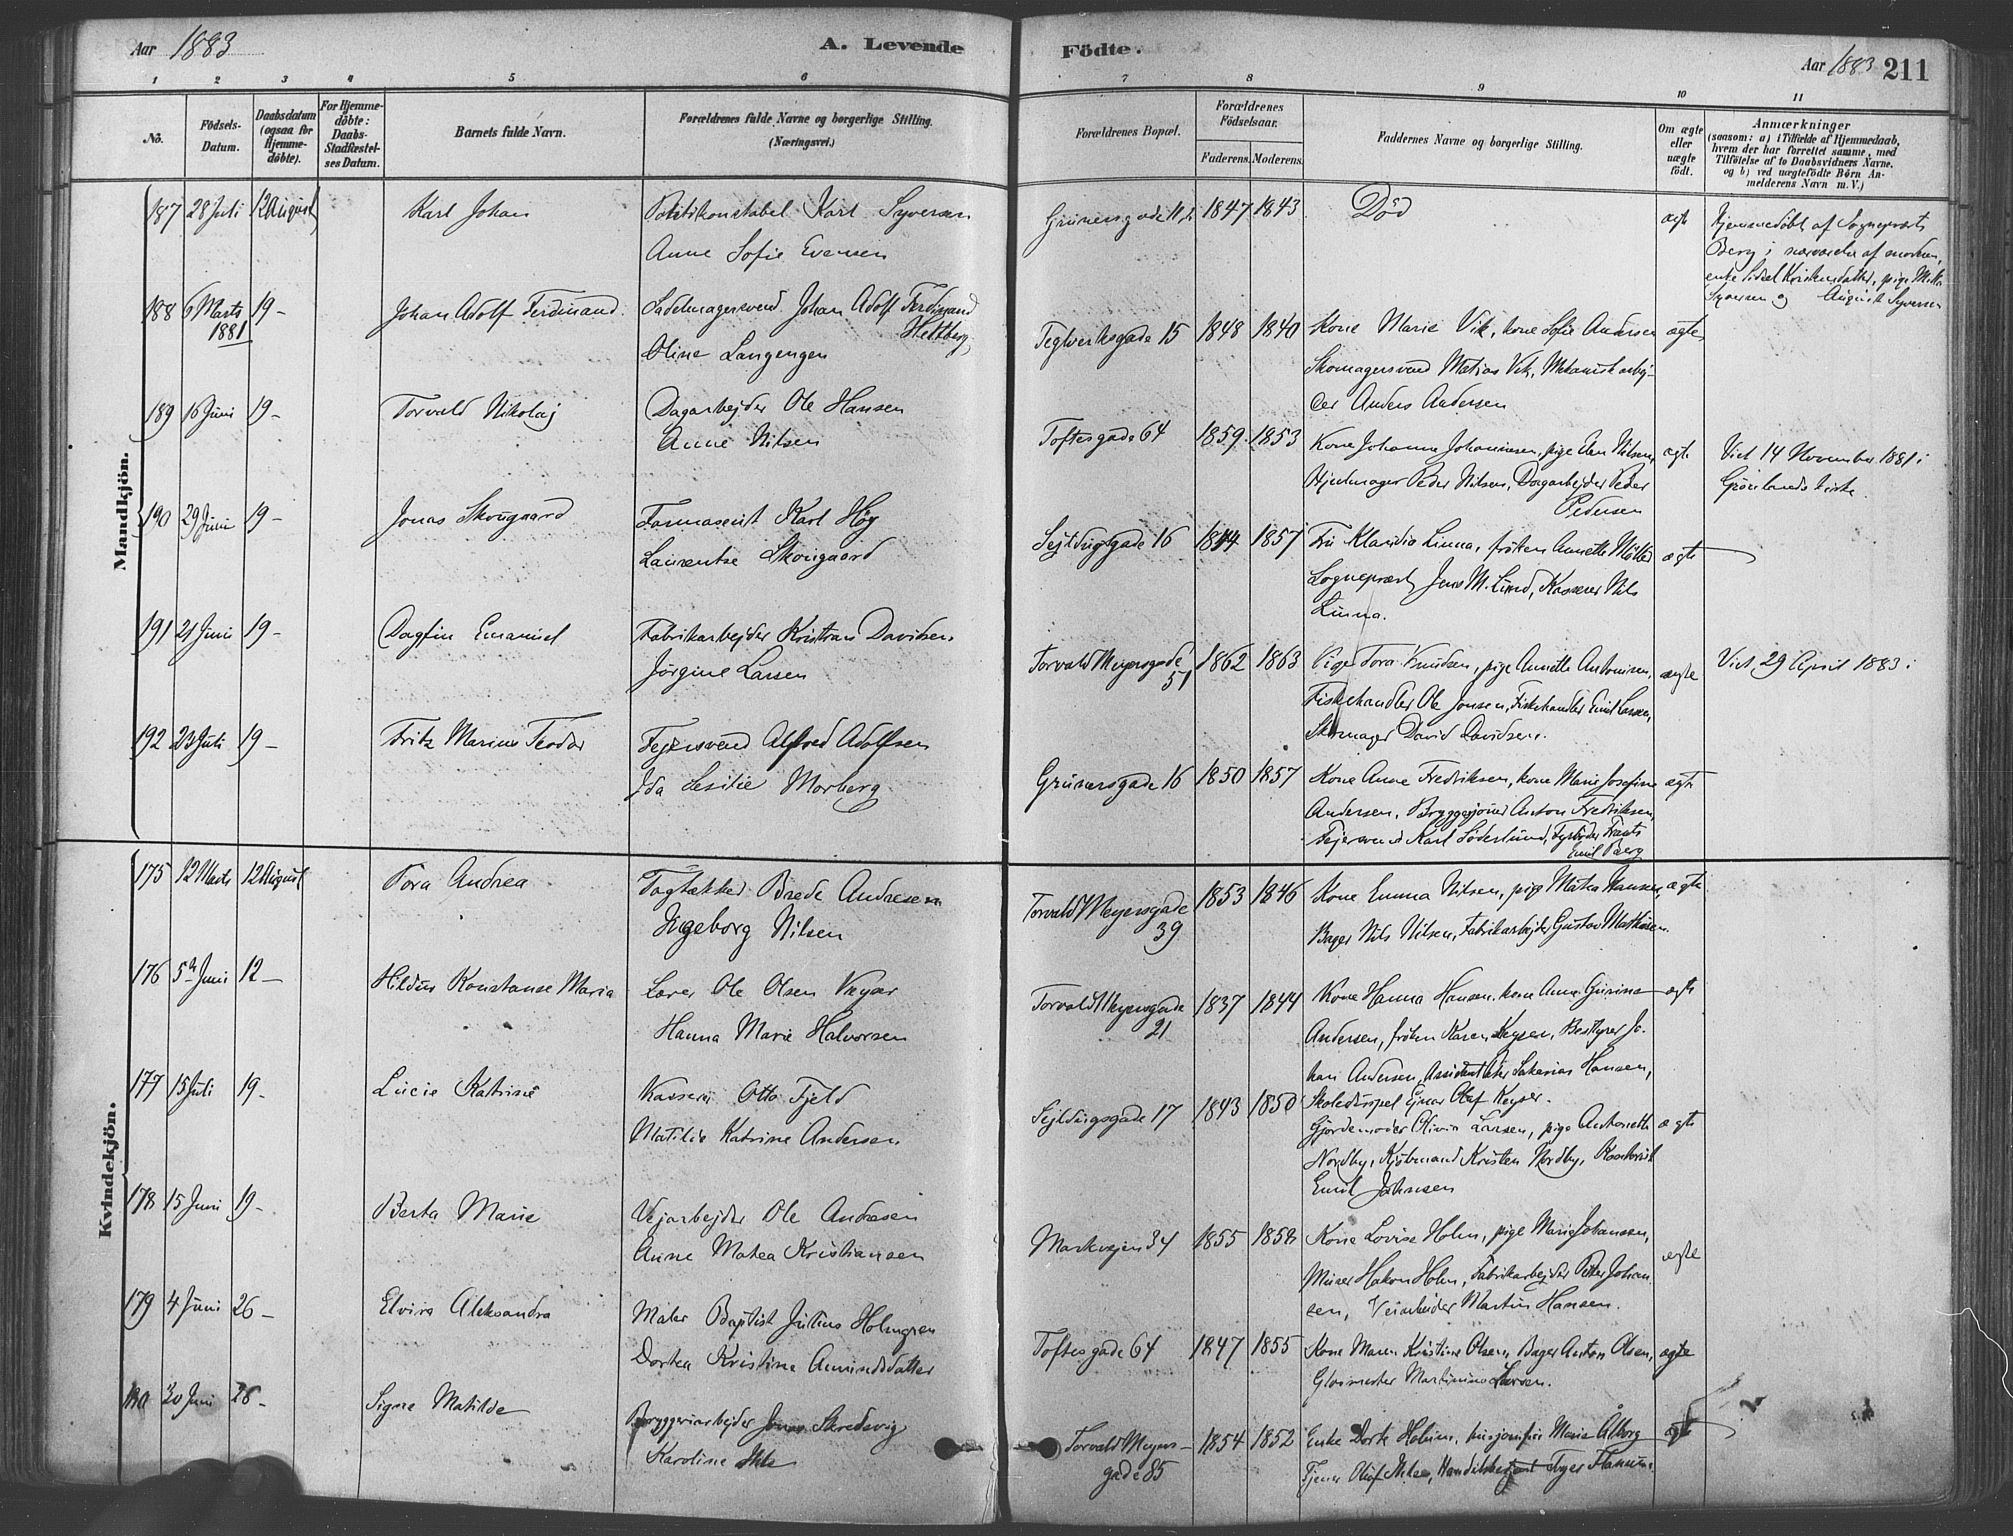 Aar 1883
A. Levende
Födte.
Aar 1883
211
1 2 3 4 5 6 7 8 9 10 11
No.
Födsels-
Datum.
Daabsdatum
(ogsaa for
Hjemme-
döbte).
For Hjemme-
döbte:
Daabs-
Stadfæstel-
ses Datum.
Barnets fulde Navn.
Forældrenes fulde Navne og borgerlige Stilling.
(Næringsvei.)
Forældrenes Bopæl.
Forældrenes
Födselsaar.
Faderens. Moderens.
Faddernes Navne og borgerlige Stilling.
Om ægte
eller
uægte
födt.
Anmærkninger
(saasom: a) i Tilfælde af Hjemmedaab,
hvem der har forrettet samme, med
Tilföielse af to Daabsvidners Navne.
og b) ved uægtefödte Börn An-
melderens Navn m. V.)
Mandkjön.
187 28 Juli 12 August Karl Johan Politikonstabel Karl Syversen
Anne Sofie Evensen
Grünersgade 11 1847 1843 Död ægte Hjemmedöbt af Sognepræst
Berg i nærværelse af
Syversen og August Syversen
188 6 Marts 19- Johan Adolf Ferdinand Sadelmagersvend Johan Adolf Ferdinand
1881
Oline Langengen
Teglverksgade 15 1848 1840 Kone Marie Vik, kone Sofie Andersen ægte
Skomagersvend Matias Vik, Mekanisk arbej-
der Anders Andersen
189 16 Juni 19- Torvald Nikolaj Dagarbejder Ole Hansen
Anne Nilsen
Toftesgade 64 1859 1853 Kone Johanne Johannesen, pige Nilsen, ægte Viet 14 November 1881 i
Hjulmager Peder Nilsen, Dagarbejder Peder Grønlands kirke.
Pedersen
190 29 Juni 19- Jonas Skougaard Farmaseut Karl Høy
Laurentse Skougaard
Sejldugsgade 16 1857 Fru Klaudia Linna, fröken Annette Möller ægte
Sognepræst Jens M. Lind, Kasserer Nils
Linna.
191 21 Juni 19- Dagfin Emanuel Fabrikarbejder Kristian Davidsen
Jörgine Larsen
Torvald Meyersgade 1862 1863 Pige Tora Knudsen, pige Annette Antonisen, ægte Viet 29 April 1883 i
51
Fiskehandler Ole Jonsen, Fiskehandler Emil Larsen,
Skomager David Davidsen.
192 23 Juli 19- Fritz Marius Teodor Fejersvend Alfred Adolfsen
Ida Morberg
Grünersgade 16 1850 1857 Kone Anne Fredriksen, kone Marie Josefine ægte
Andersen, Anton Fredriksen,
Fejersvend Karl Söderlund, Fyrböder Frants
Emil Berg
Kvindekjön.
175 12 Marts 12 August Tora Andrea Tagtækker Brede Andresen
Ingeborg Nilsen
Torvald Meyersgade 1853 1846 Kone Emma Nilsen, pige Matea Hansen, ægte
39
Bager Nils Nilsen, Fabrikarbejder Gustav Mathisen.
176 5 Juni 12- Hildur Konstanse Maria Lærer Ole Olsen Vægar
Hanna Marie Halvorsen
Torvald Meyersgade 1837 1844 Kone Hanna Hansen, kone Anne Gurine ægte
21
Andersen, fröken Karen Keyser, Bestyrer Jo-
han Andersen, Sakarias Hansen,
Skolediscipel Ejnar Olaf Keyser.
177 15 Juli 19- Lucie Katrine Kasserer Otto Fjeld
Matilde Katrine Andersen
Sejldugsgade 17 1843 1850
Gjordemoder Olivia Larsen, pige Antonette ægte
Nordby, Kjöbmand Kristen Nordby,
Emil Johnsen
178 15 Juni 19- Berta Marie Vejarbejder Ole Andresen
Anne Matea Kristiansen
Markvejen 34 1855 Kone Lovise Holm, pige Marie Johansen, ægte
Murer Hakon Holm, Fabrikarbejder Petter Johan-
sen, Veiarbeider Martin Hansen.
179 4 Juni 26- Elvira Aleksandra Maler Baptist Julius Holmgren
Dortea Kristine Amundsdatter
Toftesgade 64 1847 1855 Kone Maren Kristine Olsen, Bager Anton Olsen, ægte
Glasmester Martinius Larsen.
180 30 Juni 26- Signe Matilde Bryggeriarbejder Jonas Skredsvig
Karoline
Torvald Meyers- 1854 1852 Enke Dorte Holum, husjomfru Marie Ålborg ægte
gade 85
Tjener Oluf